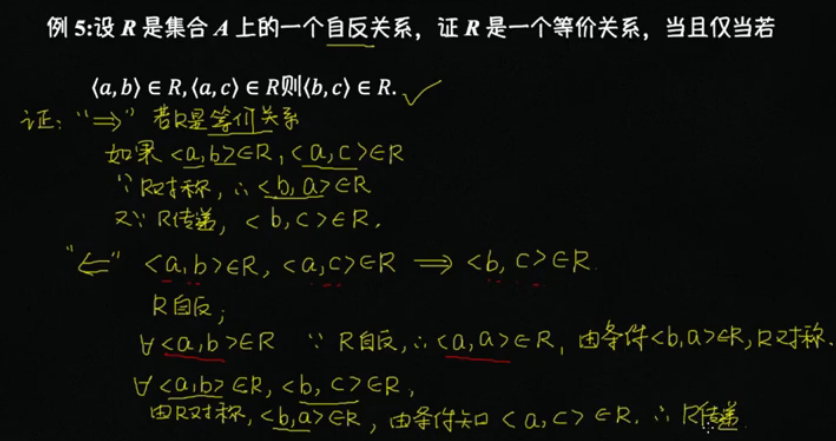 例 5:设 R 是集合 A 上的一个自反关系，证 R 是一个等价关系，当且仅当若
⟨a,b⟩ ∈ R,⟨a,c⟩ ∈ R则⟨b,c⟩ ∈ R.
证: "⇒" 若R是等价关系
如果 <a,b>∈R, <a,c>∈R
∵ R对称, ∴ <b,a>∈R
又∵ R传递, <b,c>∈R.
"⇐" <a,b>∈R, <a,c>∈R ⇒ <b,c>∈R.
R自反;
∀<a,b>∈R ∵ R自反, ∴ <a,a>∈R, 由条件<b,a>∈R, R对称.
∀<a,b>∈R, <b,c>∈R,
由R对称, <b,a>∈R, 由条件知 <a,c>∈R. ∴ R传递